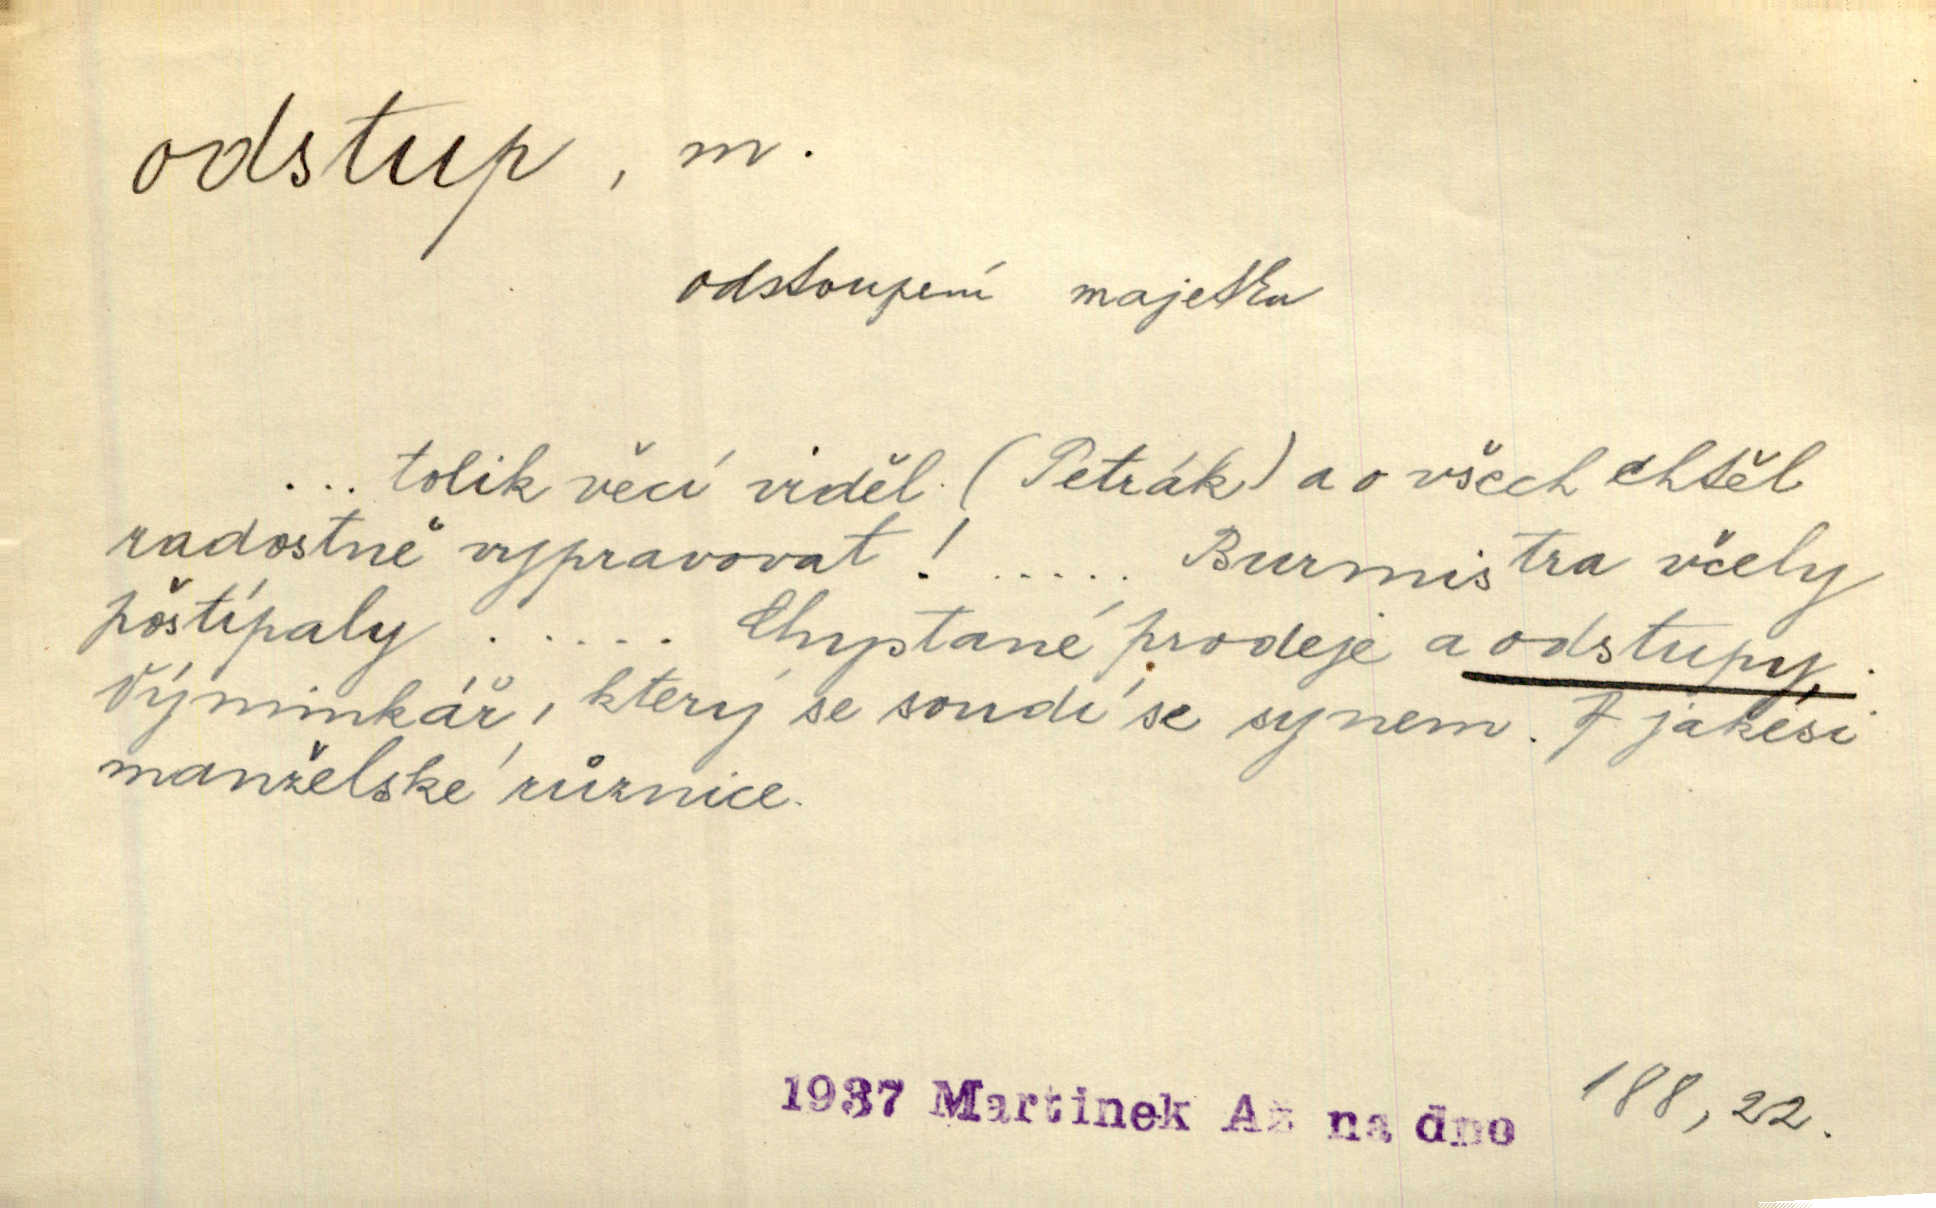 odstup, m.
odstoupení majetku
... tolik věcí viděl (Petrák) a o všech chtěl
radostně vypravovat! ..... Burmistra včely
poštípaly ..... Chystané prodeje a odstupy.
Výminkář, který se soudí se synem. A jakési
manželské různice.
1937 Martínek Až na dno 188, 22.